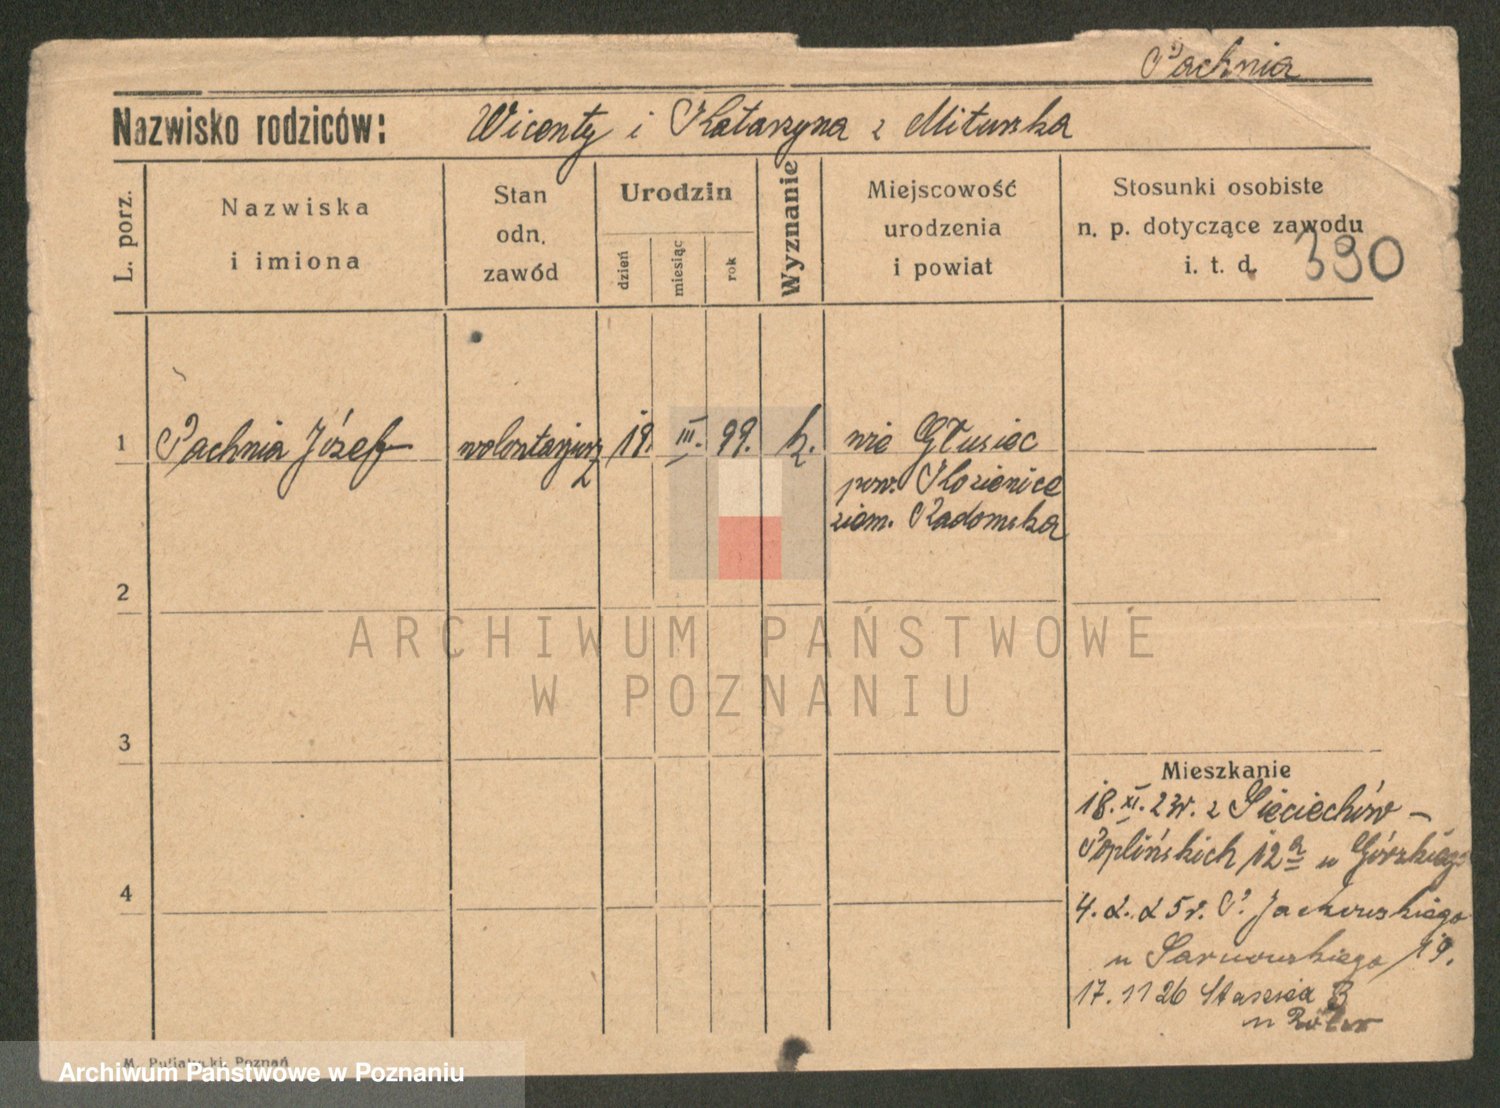 Pachnia
Nazwisko rodziców: Wicenty i Katarzyna z Miturska
L. porz.
Nazwiska
i imiona
Stan
odn.
zawód
Urodzin
dzień
miesiąc
rok
Wyznanie
Miejscowość
urodzenia
i powiat
Stosunki osobiste
n. p. dotyczące zawodu
i. t. d.
390
1 Pachnia Józef wolontarjusz 19. III. 99. k. wie Głusiec
pow. Kozienice
ziem. Radomska
2
ARCHIWUM PAŃSTWOWE
W POZNANIU
3
Mieszkanie
18. XI. 23r. z Sieciechów –
Poplińskich 12a u Górskiego
4
4. 2. 25r. P. Jackowskiego
u Sarnowskiego 19.
17. 11 26 Staszica
u
M. Putiatycki, Poznań
Archiwum Państwowe w Poznaniu